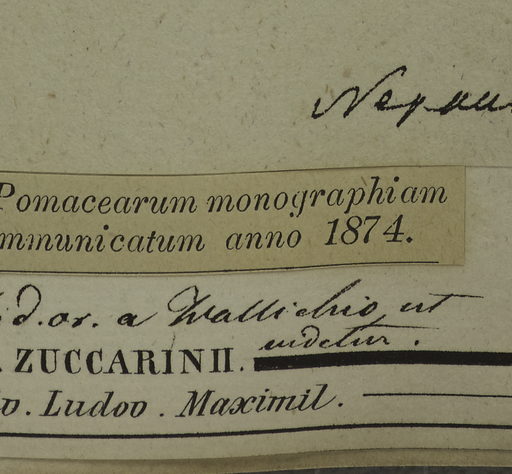 Nepau
Pomacearum monographiam
mmunicatum anno 1874.
d. or. a Wallichio ut
videtur.
. ZUCCARINII.
iv. Ludov. Maximil.